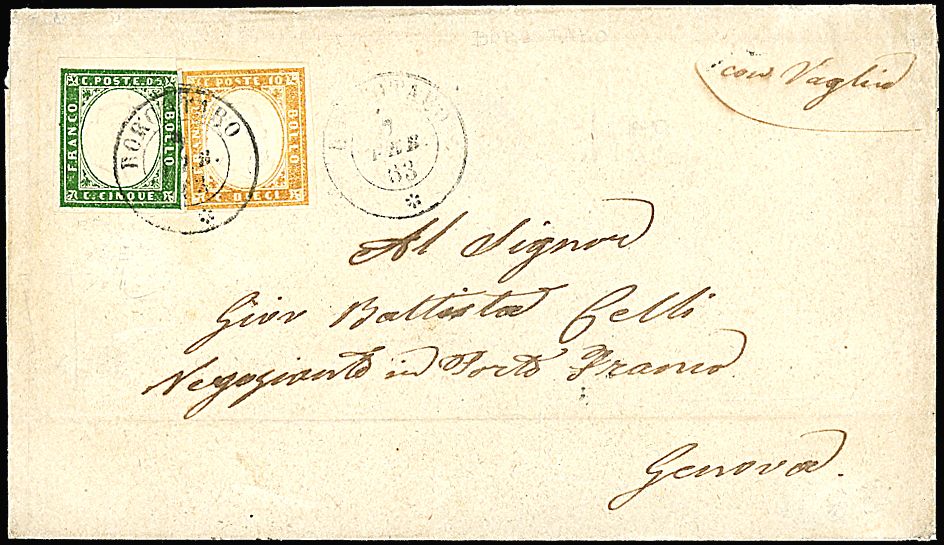 con Vaglia
C. POSTE. 05
FRANCO
BOLLO
C. CINQUE.
C. POSTE. 10
BOLLO
C. DIECI
BORGOTARO
BORGOTARO
7
FEB.
63
Al Signor
Giov Battista Celli
Negoziante in Porto Franco
Genova.